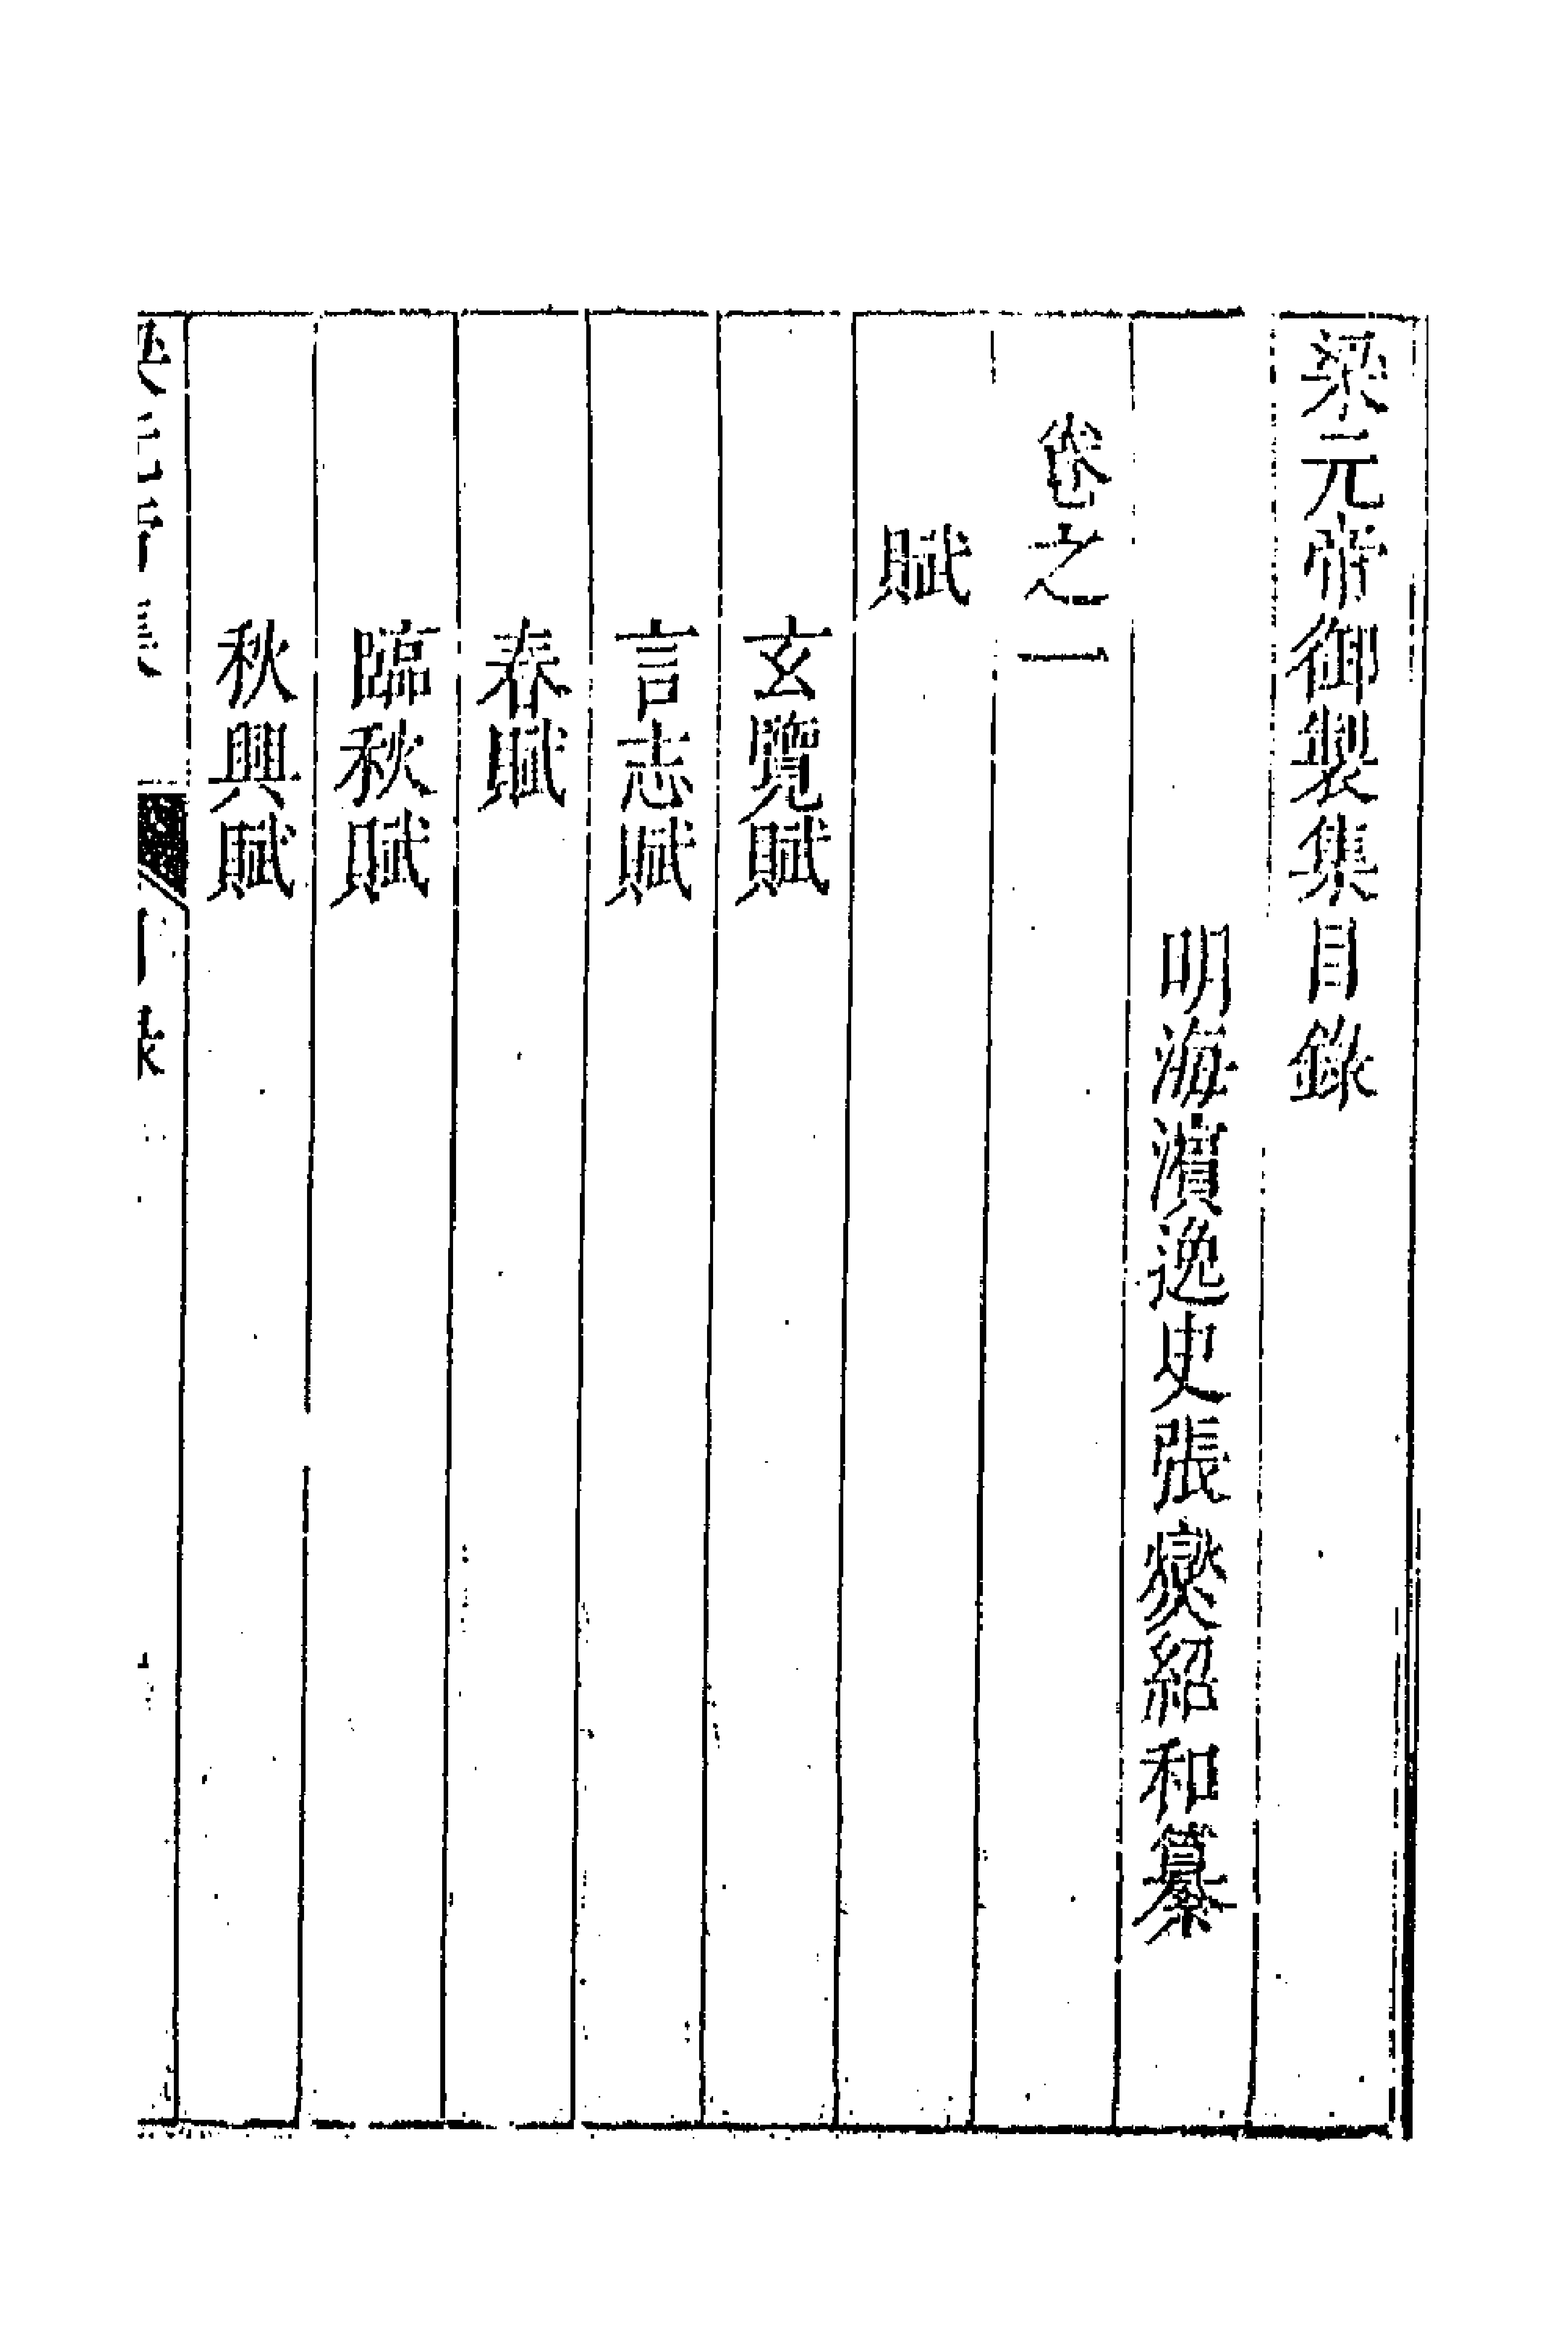 梁元帝御製集目錄
明海濱逸史張燮紹和纂
卷之一
賦
玄覽賦
言志賦
春賦
臨秋賦
秋興賦